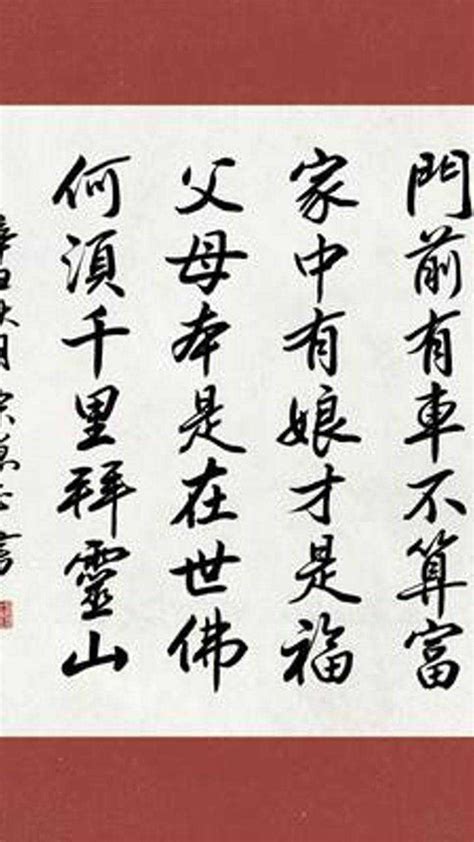 門前有車不算富
家中有娘才是福
父母本是在世佛
何須千里拜靈山